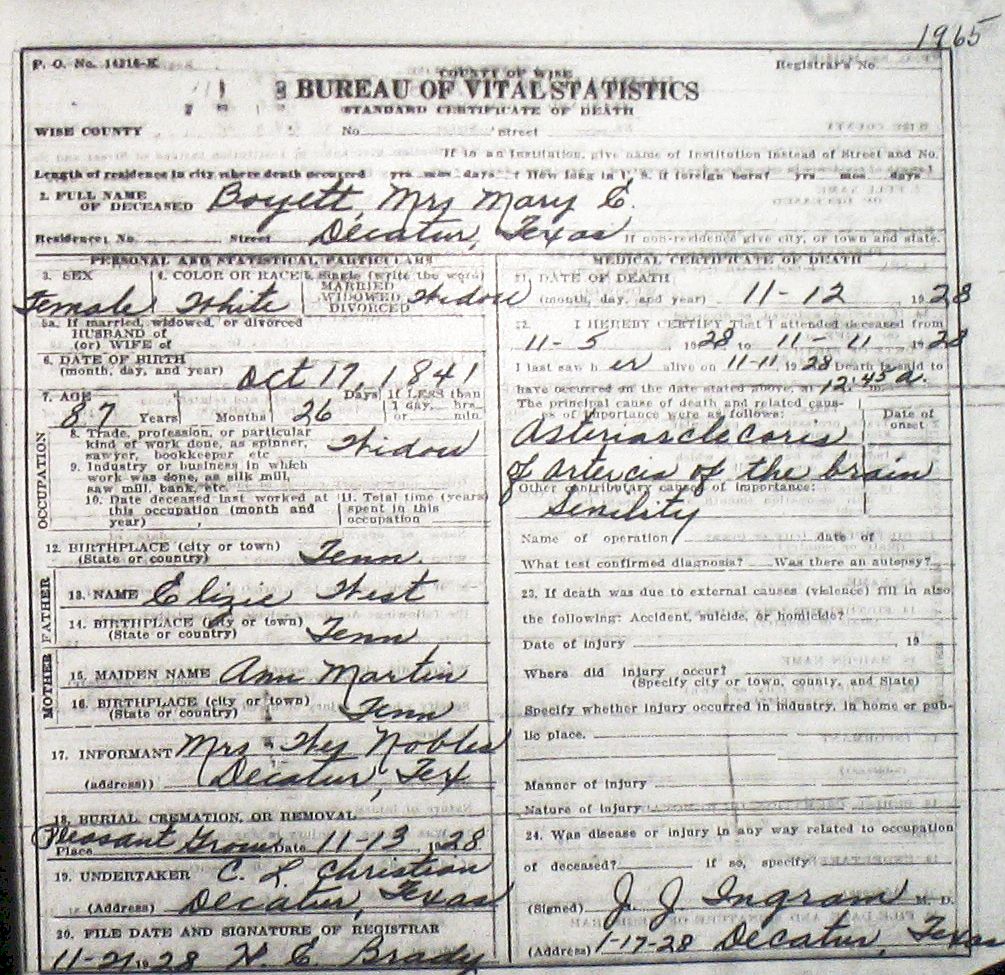 1965
P. O. No. 14216-K
COUNTY OF WISE
Registrar's No.
BUREAU OF VITAL STATISTICS
STANDARD CERTIFICATE OF DEATH
WISE COUNTY No. Street
If in an Institution, give name of Institution instead of Street and No.
Length of residence in city where death occurred yrs mos days ? How long in U. S. if foreign born? yrs mos days
2. FULL NAME OF DECEASED Boyett, Mrs Mary E.
Residence: No. Street Decatur, Texas If non-residence give city, or town and state.
PERSONAL AND STATISTICAL PARTICULARS
3. SEX Female
4. COLOR OR RACE White
5. Single (write the word) MARRIED WIDOWED DIVORCED Widow
5a. If married, widowed, or divorced
HUSBAND of
(or) WIFE of
6. DATE OF BIRTH
(month, day, and year) Oct 17, 1841
7. AGE 87 Years Months 26 Days If LESS than 1 day, hrs or min.
OCCUPATION
8. Trade, profession, or particular kind of work done, as spinner, sawyer, bookkeeper etc Widow
9. Industry or business in which work was done, as silk mill, saw mill, bank, etc
10. Date deceased last worked at this occupation (month and year)
11. Total time (years) spent in this occupation
12. BIRTHPLACE (city or town)
(State or country) Tenn.
FATHER
13. NAME Elizie West
14. BIRTHPLACE (city or town)
(State or country) Tenn
MOTHER
15. MAIDEN NAME Ann Martin
16. BIRTHPLACE (city or town)
(State or country) Tenn
17. INFORMANT Mrs Wes Nobles
(address)) Decatur, Tex
18. BURIAL, CREMATION, OR REMOVAL
Place Pleasant Grove Date 11-13, 1928
19. UNDERTAKER C. L. Christian
(Address) Decatur, Texas
20. FILE DATE AND SIGNATURE OF REGISTRAR
11-21 1928 H. E. Brady
MEDICAL CERTIFICATE OF DEATH
21. DATE OF DEATH
(month, day, and year) 11-12 1928
22. I HEREBY CERTIFY That I attended deceased from
11-5 1928 to 11-11 1928
I last saw h er alive on 11-11 1928 Death is said to
have occurred on the date stated above, at 12:45 a.
The principal cause of death and related causes of importance were as follows:
Date of onset
Asteriarclocoris
of arteries of the brain
Other contributary causes of importance:
Senility
Name of operation date of
What test confirmed diagnosis? Was there an autopsy?
23. If death was due to external causes (violence) fill in also
the following: Accident, suicide, or homicide?
Date of injury 19
Where did injury occur?
(Specify city or town, county, and State)
Specify whether injury occurred in industry, in home or pub-
lic place.
Manner of injury
Nature of injury
24. Was disease or injury in any way related to occupation
of deceased? if so, specify
(Signed) J. J. Ingram M. D.
(Address) 1-17-28 Decatur, Texas